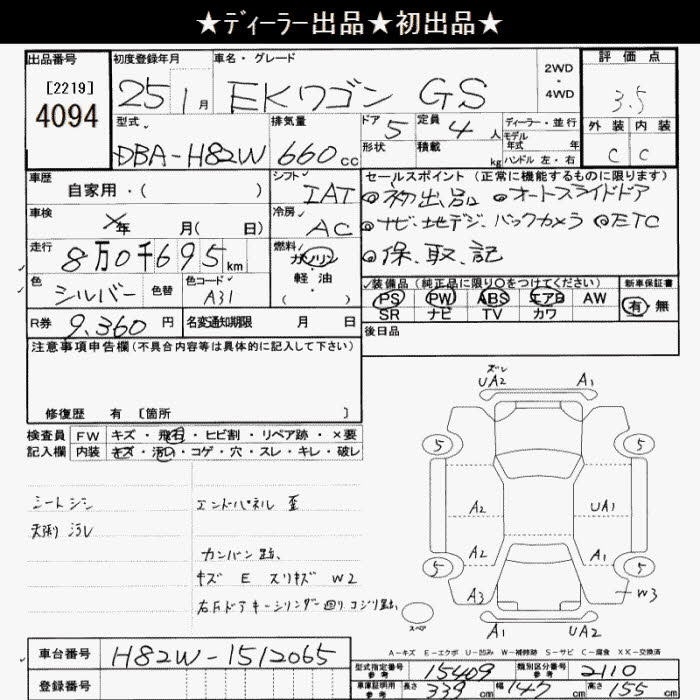 ★ディーラー出品★初出品★
出品番号 初度登録年月 車名・グレード 2WD ・ 4WD 評価点
[2219]
4094 25 1月 EKワゴン GS 3.5
型式 排気量 ドア 5 定員 4人 ディーラー・並行 外装 内装
DBA-H82W 660cc 形状 積載 kg モデル年式 年 ハンドル 左・右 C C
車歴 自家用・( ) シフト IAT セールスポイント (正常に機能するものに限ります)
車検 年 月( 日) 冷房 AC ◎初出品 ◎オートスライドドア
◎ナビ、地デジ、バックカメラ ◎ETC
走行 8万0千695km 燃料 ガソリン・軽油・( ) ◎保、取、記
色 シルバー 色替 色コード A31 装備品 (純正品に限り○をつけてください) 新車保証書
PS PW ABS エアB AW 有 無
SR ナビ TV カワ
R券 9,360円 名変通知期限 月 日 後日品
注意事項申告欄(不具合内容等は具体的に記入して下さい)
修復歴 有 [箇所 ]
検査員 FW キズ・飛石・ヒビ割・リペア跡・×要
記入欄 内装 キズ・汚れ・コゲ・穴・スレ・キレ・破レ
シートシミ エンドパネル 歪
天張 汚レ
カンバン跡、
キズ E スリキズ W2
右Fドアキーシリンダー廻りコジリ跡、
ズレ
UA2 A1
5 5
A2 UA1
A2 A1
5 5
A3 W3
スペア A1 UA2
A-キズ E-エクボ U-凹み W-補修跡 S-サビ C-腐食 XX-交換済
車台番号 H82W-1512065
登録番号
型式指定番号 参考 15409 類別区分番号 参考 2110
車庫証明用 参考 長さ 339cm 幅 147cm 高さ 155cm